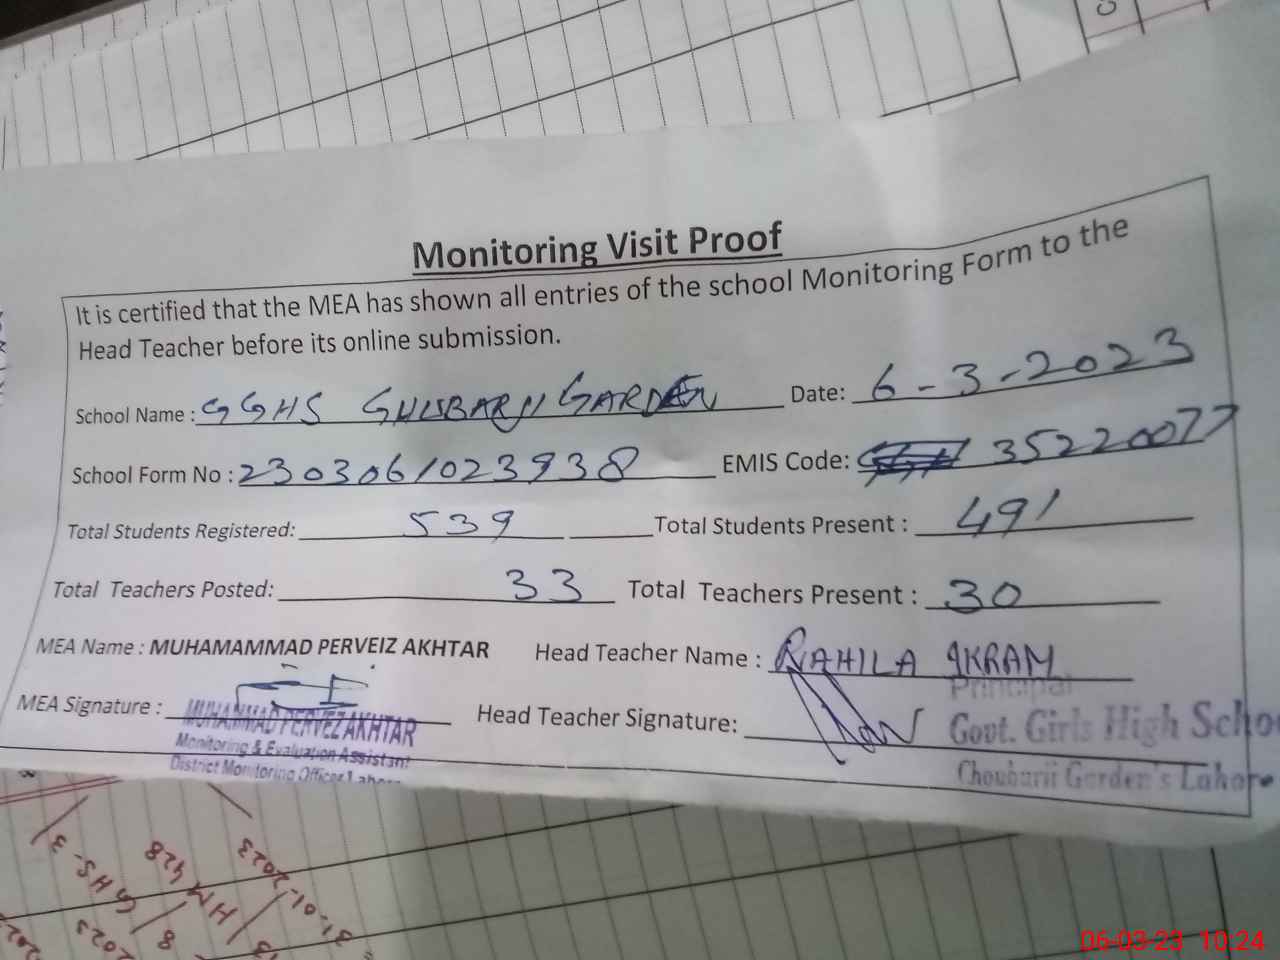 Monitoring Visit Proof
It is certified that the MEA has shown all entries of the school Monitoring Form to the
Head Teacher before its online submission.
School Name : GGHS GHUBARJI GARDEN Date: 6-3-2023
School Form No : 2303061023938 EMIS Code: 35220077
Total Students Registered: 539 Total Students Present : 491
Total Teachers Posted: 33 Total Teachers Present : 30
MEA Name : MUHAMAMMAD PERVEIZ AKHTAR Head Teacher Name : RAHILA IKRAM
MEA Signature : Head Teacher Signature:
MUHAMMAD PERVEZ AKHTAR
Monitoring & Evaluation Assistant
District Monitoring Officer Lahore
Principal
Govt. Girls High Schoo
Chouburji Garden's Lahore
31-01-2023
HM 428
GHS-3
8
2023
06-03-23 10:24